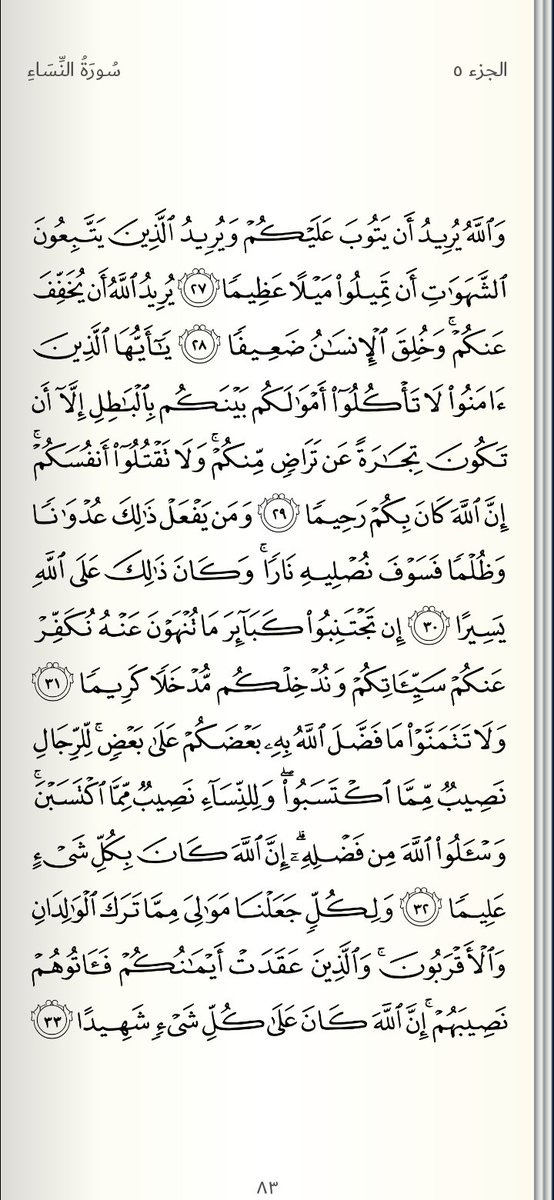 سُورَةُ النِّسَاءِ
الجزء ٥
وَٱللَّهُ يُرِيدُ أَن يَتُوبَ عَلَيْكُمْ وَيُرِيدُ ٱلَّذِينَ يَتَّبِعُونَ
ٱلشَّهَوَٰتِ أَن تَمِيلُوا۟ مَيْلًا عَظِيمًا ٢٧ يُرِيدُ ٱللَّهُ أَن يُخَفِّفَ
عَنكُمْ ۚ وَخُلِقَ ٱلْإِنسَٰنُ ضَعِيفًا ٢٨ يَٰٓأَيُّهَا ٱلَّذِينَ
ءَامَنُوا۟ لَا تَأْكُلُوٓا۟ أَمْوَٰلَكُم بَيْنَكُم بِٱلْبَٰطِلِ إِلَّآ أَن
تَكُونَ تِجَٰرَةً عَن تَرَاضٍ مِّنكُمْ ۚ وَلَا تَقْتُلُوٓا۟ أَنفُسَكُمْ ۚ
إِنَّ ٱللَّهَ كَانَ بِكُمْ رَحِيمًا ٢٩ وَمَن يَفْعَلْ ذَٰلِكَ عُدْوَٰنًا
وَظُلْمًا فَسَوْفَ نُصْلِيهِ نَارًا ۚ وَكَانَ ذَٰلِكَ عَلَى ٱللَّهِ
يَسِيرًا ٣٠ إِن تَجْتَنِبُوا۟ كَبَآئِرَ مَا تُنْهَوْنَ عَنْهُ نُكَفِّرْ
عَنكُمْ سَيِّـَٔاتِكُمْ وَنُدْخِلْكُم مُّدْخَلًا كَرِيمًا ٣١
وَلَا تَتَمَنَّوْا۟ مَا فَضَّلَ ٱللَّهُ بِهِۦ بَعْضَكُمْ عَلَىٰ بَعْضٍ ۚ لِّلرِّجَالِ
نَصِيبٌ مِّمَّا ٱكْتَسَبُوا۟ ۖ وَلِلنِّسَآءِ نَصِيبٌ مِّمَّا ٱكْتَسَبْنَ ۚ
وَسْـَٔلُوا۟ ٱللَّهَ مِن فَضْلِهِۦٓ ۗ إِنَّ ٱللَّهَ كَانَ بِكُلِّ شَىْءٍ
عَلِيمًا ٣٢ وَلِكُلٍّ جَعَلْنَا مَوَٰلِىَ مِمَّا تَرَكَ ٱلْوَٰلِدَانِ
وَٱلْأَقْرَبُونَ ۚ وَٱلَّذِينَ عَقَدَتْ أَيْمَٰنُكُمْ فَـَٔاتُوهُمْ
نَصِيبَهُمْ ۚ إِنَّ ٱللَّهَ كَانَ عَلَىٰ كُلِّ شَىْءٍ شَهِيدًا ٣٣
٨٣